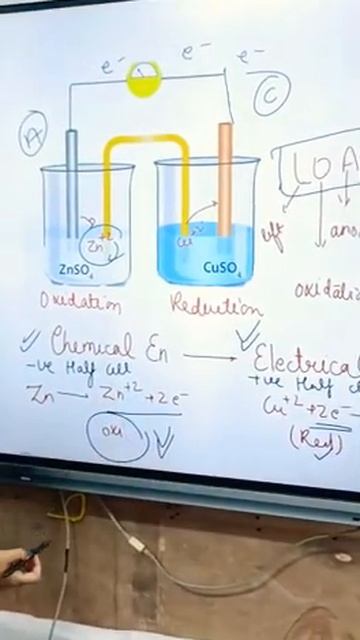 e⁻ e⁻ e⁻
A C
LOA
Zn⁺² Cu⁺²
ZnSO₄ CuSO₄
left ano
Oxidation Reduction oxidati
Chemical En → Electrical
-ve Half cell +ve Half c
Zn → Zn⁺² + 2e⁻ Cu⁺² + 2e⁻
oxi (Red)